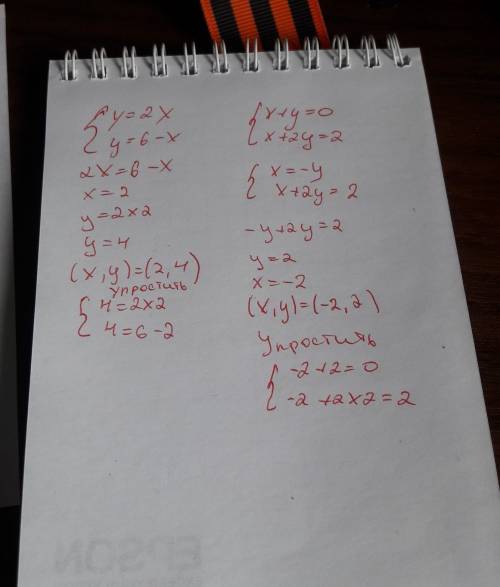 y=2x
y=6-x
2x=6-x
x=2
y=2×2
y=4
(x,y)=(2,4)
упростить
4=2×2
4=6-2
x+y=0
x+2y=2
x=-y
x+2y=2
-y+2y=2
y=2
x=-2
(x,y)=(-2,2)
Упростить
-2+2=0
-2+2×2=2
EPSON